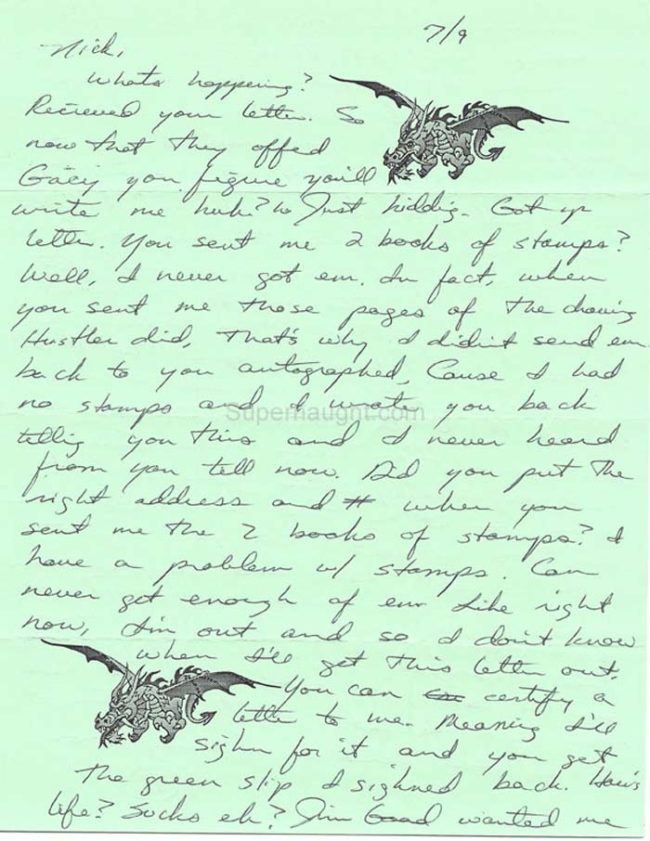 7/9
Nick,
Whats happening?
Recieved your letter. So
now that they offed
Gacy you figure you'll
write me huh? ha Just kiddig. Got yr
letter. You sent me 2 books of stamps?
Well, I never got em. In fact, when
you sent me those pages of the drawing
Hustler did, That's why I didn't send em
back to you autographed, Cause I had
no stamps and I wrote you back
tellig you this and I never heard
from you tell now. Did you put the
right address and # when you
sent me the 2 books of stamps? I
have a problem w/ stamps. Can
never get enough of em. Like right
now, I'm out and so I don't know
when I'll get this letter out.
You can certify a
letter to me. Meaning I'll
sighn for it and you get
the green slip I sighned back. How's
life? Sucks eh? Jim Good wanted me
Supernaught.com